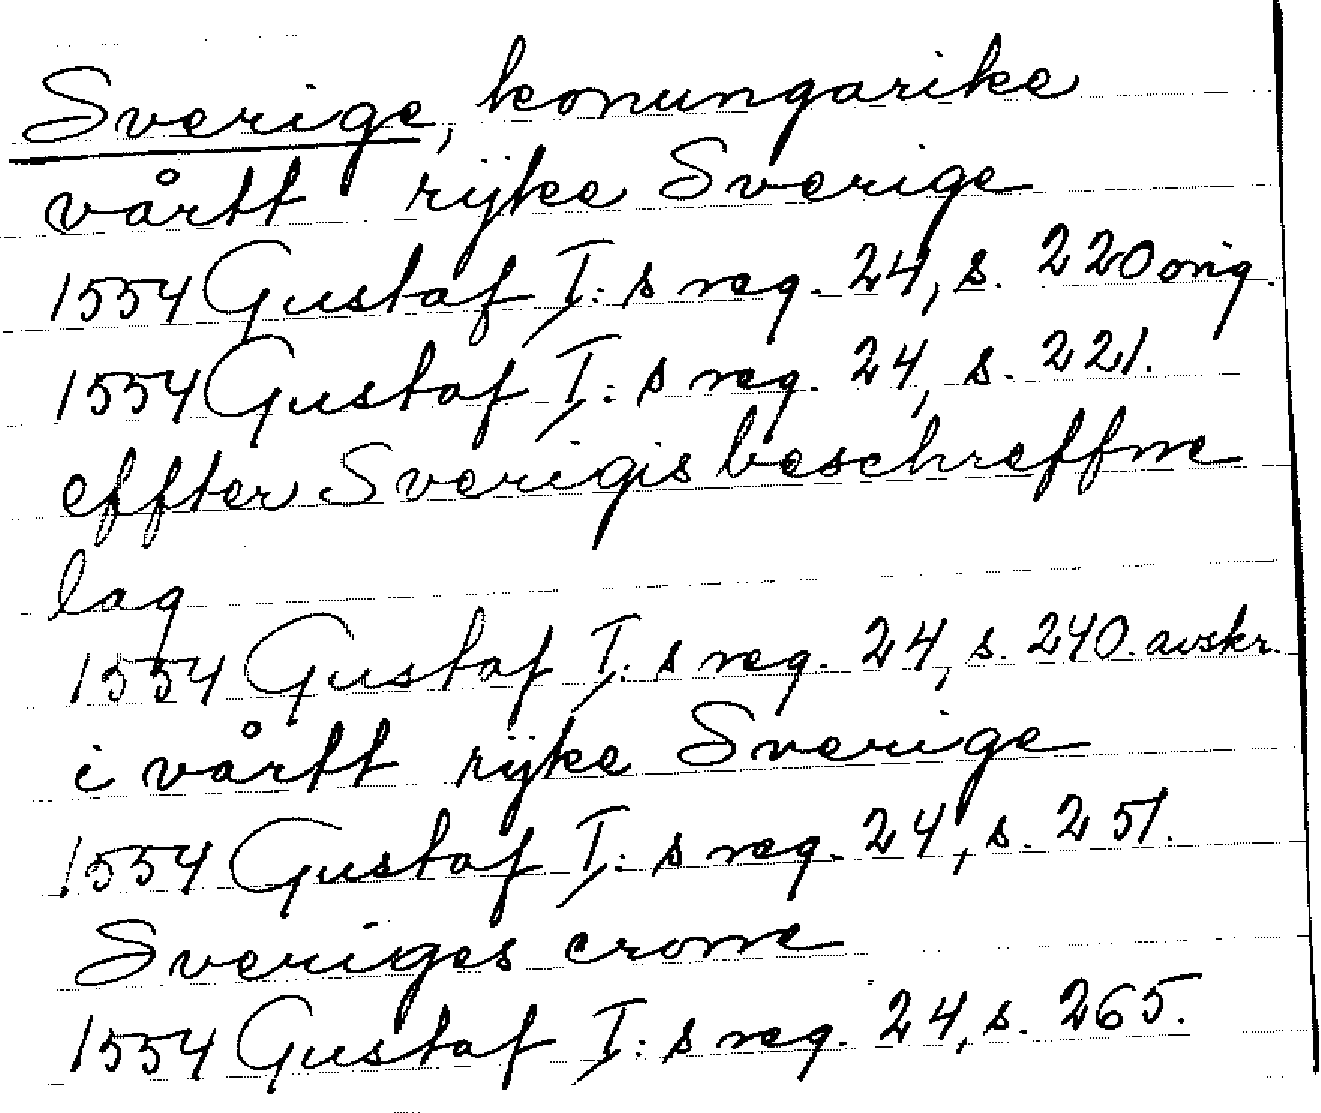 Sverige, konungarike
vårtt rijke Sverige
1554 Gustaf I:s reg. 24, s. 220 orig.
1554 Gustaf I:s reg. 24, s. 221.
effter Sverigis beschreffne
lag
1554 Gustaf I:s reg. 24, s. 240. avskr.
i vårtt rijke Sverige
1554 Gustaf I:s reg. 24, s. 251.
Sveriges crone
1554 Gustaf I:s reg. 24, s. 265.